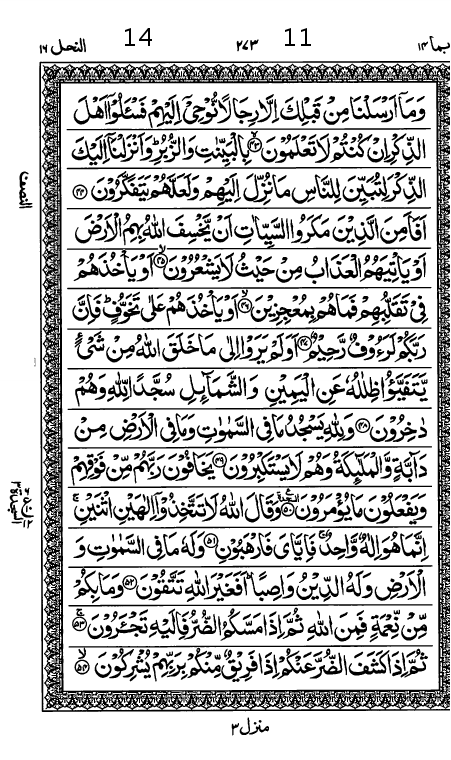 النحل ١٦ 14 ٢٧٣ 11 ربما ١٤
وَمَآ اَرْسَلْنَا مِنْ قَبْلِكَ اِلَّا رِجَالًا نُّوْحِيْٓ اِلَيْهِمْ فَسْـَٔلُوْٓا اَهْلَ
الذِّكْرِ اِنْ كُنْتُمْ لَا تَعْلَمُوْنَ ۙ﴿٤٣﴾ بِالْبَيِّنٰتِ وَالزُّبُرِ ؕ وَاَنْزَلْنَآ اِلَيْكَ
الذِّكْرَ لِتُبَيِّنَ لِلنَّاسِ مَا نُزِّلَ اِلَيْهِمْ وَلَعَلَّهُمْ يَتَفَكَّرُوْنَ ﴿٤٤﴾
اَفَاَمِنَ الَّذِيْنَ مَكَرُوا السَّيِّاٰتِ اَنْ يَّخْسِفَ اللّٰهُ بِهِمُ الْاَرْضَ
اَوْ يَاْتِيَهُمُ الْعَذَابُ مِنْ حَيْثُ لَا يَشْعُرُوْنَ ۙ﴿٤٥﴾ اَوْ يَاْخُذَهُمْ
فِيْ تَقَلُّبِهِمْ فَمَا هُمْ بِمُعْجِزِيْنَ ۙ﴿٤٦﴾ اَوْ يَاْخُذَهُمْ عَلٰى تَخَوُّفٍ ؕ فَاِنَّ
رَبَّكُمْ لَرَءُوْفٌ رَّحِيْمٌ ﴿٤٧﴾ اَوَلَمْ يَرَوْا اِلٰى مَا خَلَقَ اللّٰهُ مِنْ شَيْءٍ
يَّتَفَيَّؤُا ظِلٰلُهٗ عَنِ الْيَمِيْنِ وَالشَّمَآئِلِ سُجَّدًا لِّلّٰهِ وَهُمْ
دٰخِرُوْنَ ﴿٤٨﴾ وَلِلّٰهِ يَسْجُدُ مَا فِي السَّمٰوٰتِ وَمَا فِي الْاَرْضِ مِنْ
دَآبَّةٍ وَّالْمَلٰٓئِكَةُ وَهُمْ لَا يَسْتَكْبِرُوْنَ ﴿٤٩﴾ يَخَافُوْنَ رَبَّهُمْ مِّنْ فَوْقِهِمْ
وَيَفْعَلُوْنَ مَا يُؤْمَرُوْنَ ﴿٥٠﴾ وَقَالَ اللّٰهُ لَا تَتَّخِذُوْٓا اِلٰهَيْنِ اثْنَيْنِ ۚ
اِنَّمَا هُوَ اِلٰهٌ وَّاحِدٌ ۚ فَاِيَّايَ فَارْهَبُوْنِ ﴿٥١﴾ وَلَهٗ مَا فِي السَّمٰوٰتِ وَ
الْاَرْضِ وَلَهُ الدِّيْنُ وَاصِبًا ؕ اَفَغَيْرَ اللّٰهِ تَتَّقُوْنَ ﴿٥٢﴾ وَمَا بِكُمْ
مِّنْ نِّعْمَةٍ فَمِنَ اللّٰهِ ثُمَّ اِذَا مَسَّكُمُ الضُّرُّ فَاِلَيْهِ تَجْـَٔرُوْنَ ۚ﴿٥٣﴾
ثُمَّ اِذَا كَشَفَ الضُّرَّ عَنْكُمْ اِذَا فَرِيْقٌ مِّنْكُمْ بِرَبِّهِمْ يُشْرِكُوْنَ ۙ﴿٥٤﴾
النصف
السجدة ٣
منزل ٣